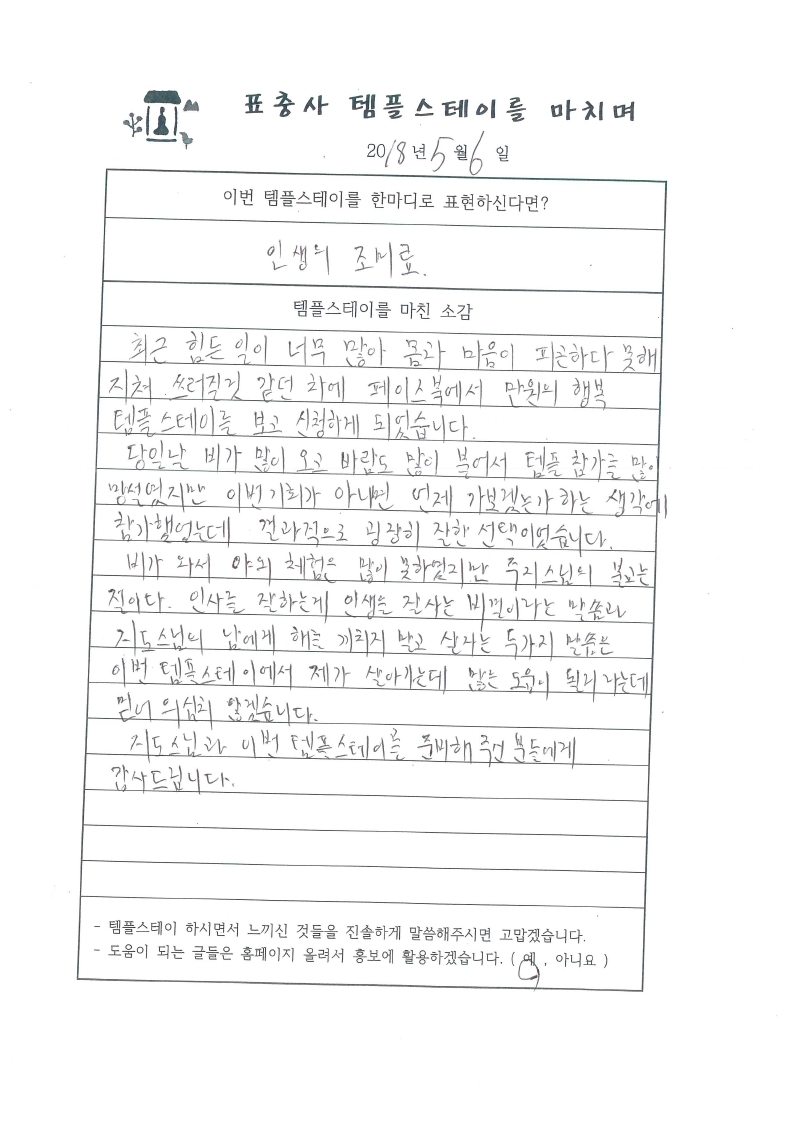 표충사 템플스테이를 마치며
2018년 5월 6일
이번 템플스테이를 한마디로 표현하신다면?
인생의 조미료.
템플스테이를 마친 소감
최근 힘든 일이 너무 많아 몸과 마음이 피곤하다 못해
지쳐 쓰러질것 같던 차에 페이스북에서 만원의 행복
템플스테이를 보고 신청하게 되었습니다.
당일날 비가 많이 오고 바람도 많이 불어서 템플 참가를 많이
망설였지만 이번 기회가 아니면 언제 가보겠는가 하는 생각에
참가했었는데 결과적으로 굉장히 잘한 선택이었습니다.
비가 와서 야외 체험은 많이 못하였지만 주지스님의 불교는
적이다. 인사를 잘하는게 인생을 잘사는 비결이라는 말씀과
지도스님의 남에게 해를 끼치지 말고 살자는 두가지 말씀은
이번 템플스테이에서 제가 살아가는데 많은 도움이 될리라는데
믿어 의심치 않겠습니다.
지도스님과 이번 템플스테이를 준비해 주신 분들에게
감사드립니다.
- 템플스테이 하시면서 느끼신 것들을 진솔하게 말씀해주시면 고맙겠습니다.
- 도움이 되는 글들은 홈페이지 올려서 홍보에 활용하겠습니다. ( 예 , 아니요 )